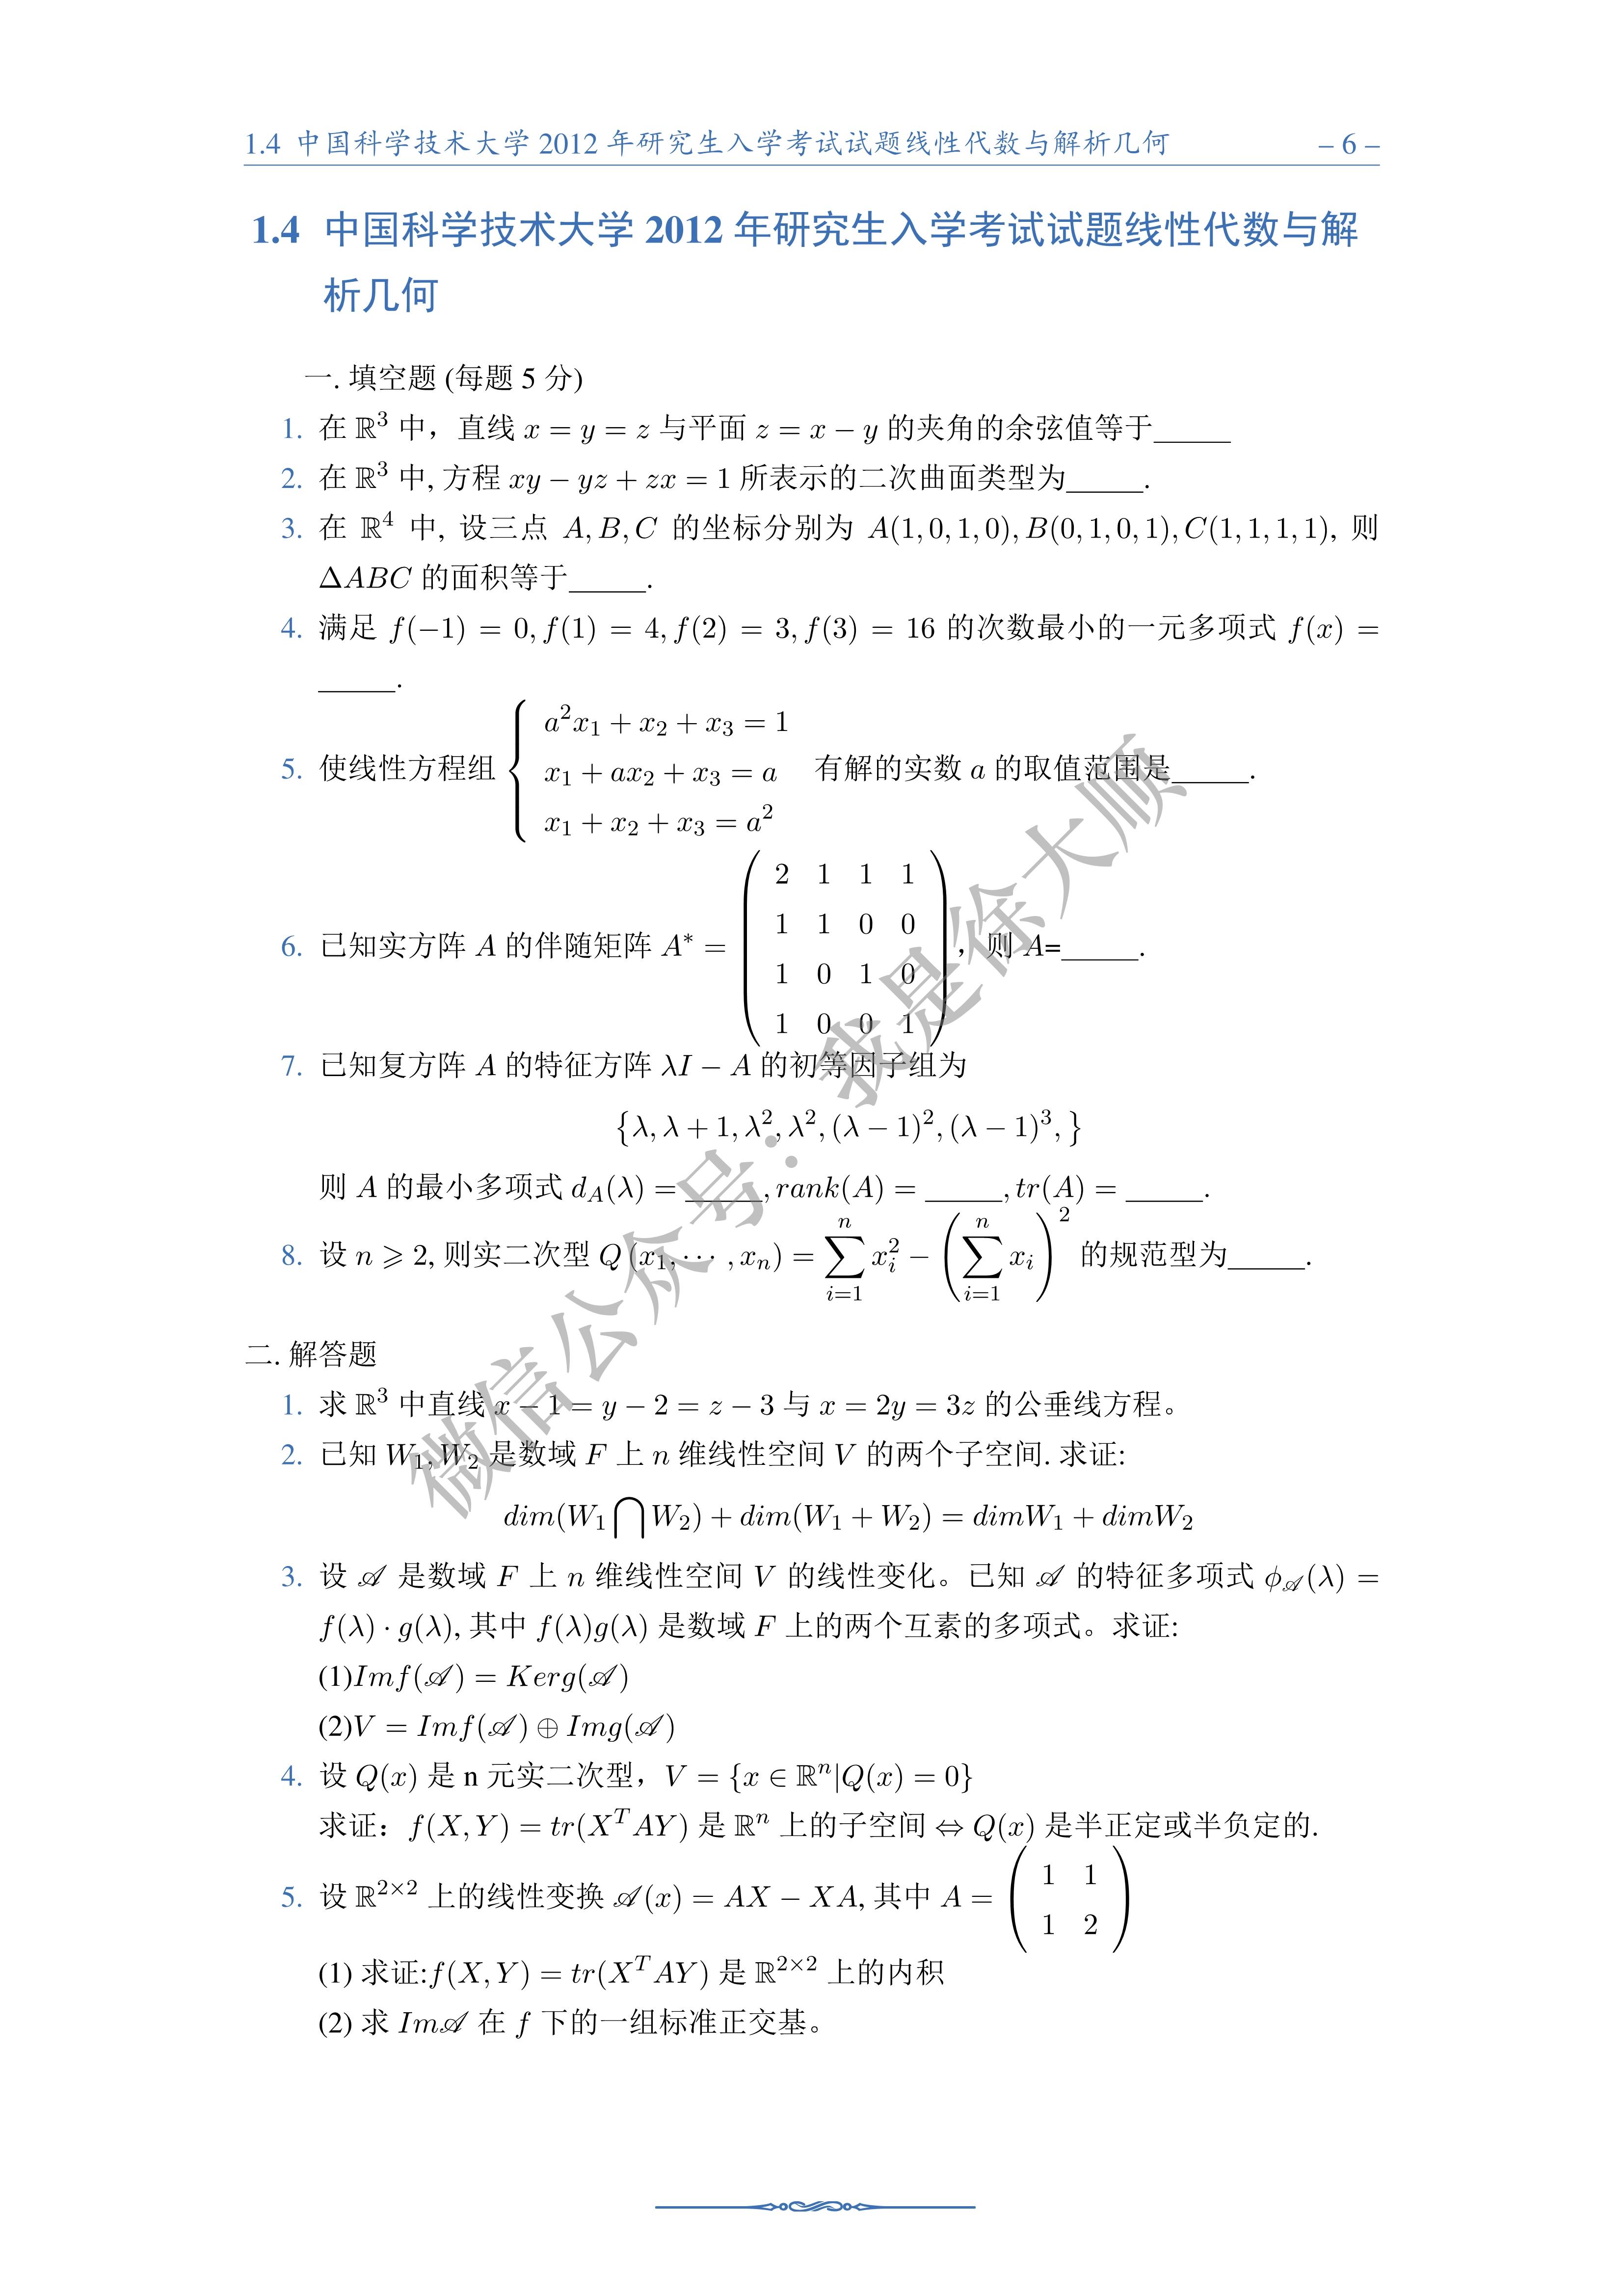 1.4 中国科学技术大学 2012 年研究生入学考试试题线性代数与解析几何 – 6 –
1.4 中国科学技术大学 2012 年研究生入学考试试题线性代数与解
析几何
一. 填空题 (每题 5 分)
1. 在 ℝ³ 中，直线 x = y = z 与平面 z = x − y 的夹角的余弦值等于_____
2. 在 ℝ³ 中, 方程 xy − yz + zx = 1 所表示的二次曲面类型为_____.
3. 在 ℝ⁴ 中, 设三点 A, B, C 的坐标分别为 A(1, 0, 1, 0), B(0, 1, 0, 1), C(1, 1, 1, 1), 则
ΔABC 的面积等于_____.
4. 满足 f(−1) = 0, f(1) = 4, f(2) = 3, f(3) = 16 的次数最小的一元多项式 f(x) =
_____.
5. 使线性方程组 { a²x₁ + x₂ + x₃ = 1
x₁ + ax₂ + x₃ = a
x₁ + x₂ + x₃ = a² 有解的实数 a 的取值范围是_____.
6. 已知实方阵 A 的伴随矩阵 A* = ( 2 1 1 1
1 1 0 0
1 0 1 0
1 0 0 1 )，则 A=_____.
7. 已知复方阵 A 的特征方阵 λI − A 的初等因子组为
{λ, λ + 1, λ², λ², (λ − 1)², (λ − 1)³, }
则 A 的最小多项式 d_A(λ) = _____, rank(A) = _____, tr(A) = _____.
8. 设 n ⩾ 2, 则实二次型 Q (x₁, ⋯ , xₙ) = ∑_{i=1}^{n} x_i² − (∑_{i=1}^{n} x_i)² 的规范型为_____.
二. 解答题
1. 求 ℝ³ 中直线 x − 1 = y − 2 = z − 3 与 x = 2y = 3z 的公垂线方程。
2. 已知 W₁, W₂ 是数域 F 上 n 维线性空间 V 的两个子空间. 求证:
dim(W₁ ⋂ W₂) + dim(W₁ + W₂) = dimW₁ + dimW₂
3. 设 𝒜 是数域 F 上 n 维线性空间 V 的线性变化。已知 𝒜 的特征多项式 ϕ_𝒜(λ) =
f(λ) · g(λ), 其中 f(λ)g(λ) 是数域 F 上的两个互素的多项式。求证:
(1)Imf(𝒜) = Kerg(𝒜)
(2)V = Imf(𝒜) ⊕ Img(𝒜)
4. 设 Q(x) 是 n 元实二次型，V = {x ∈ ℝⁿ|Q(x) = 0}
求证：f(X, Y) = tr(XᵀAY) 是 ℝⁿ 上的子空间 ⇔ Q(x) 是半正定或半负定的.
5. 设 ℝ²ˣ² 上的线性变换 𝒜(x) = AX − XA, 其中 A = ( 1 1
1 2 )
(1) 求证:f(X, Y) = tr(XᵀAY) 是 ℝ²ˣ² 上的内积
(2) 求 Im𝒜 在 f 下的一组标准正交基。
微信公众号：我是徐大顺